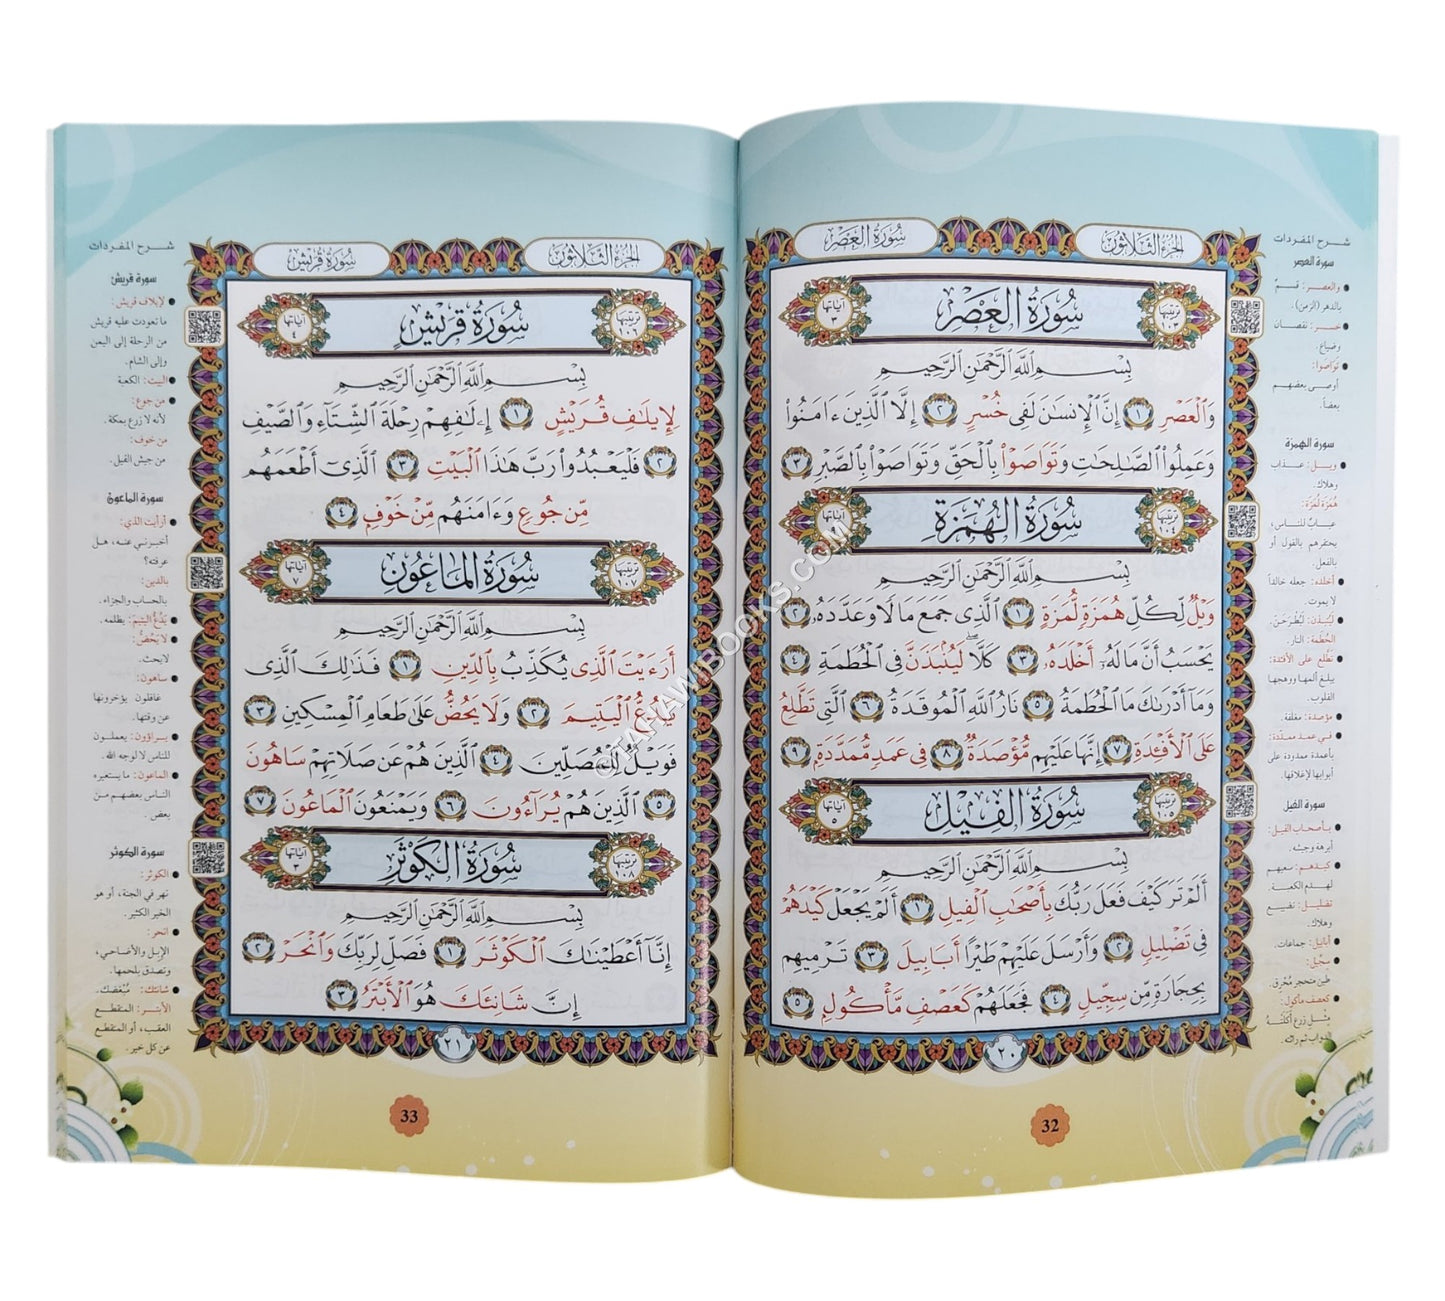 سورة العصر
الجزء الثلاثون
ترتيبها ١٠٣
سُورَةُ العَصْرِ
آياتها ٣
بِسْمِ اللَّهِ الرَّحْمَٰنِ الرَّحِيمِ
وَالْعَصْرِ ١ إِنَّ الْإِنسَٰنَ لَفِي خُسْرٍ ٢ إِلَّا الَّذِينَ ءَامَنُوا
وَعَمِلُوا الصَّٰلِحَٰتِ وَتَوَاصَوْا بِالْحَقِّ وَتَوَاصَوْا بِالصَّبْرِ ٣
ترتيبها ١٠٤
سُورَةُ الهُمَزَةِ
آياتها ٩
بِسْمِ اللَّهِ الرَّحْمَٰنِ الرَّحِيمِ
وَيْلٌ لِّكُلِّ هُمَزَةٍ لُّمَزَةٍ ١ الَّذِي جَمَعَ مَالًا وَعَدَّدَهُ ٢
يَحْسَبُ أَنَّ مَالَهُ أَخْلَدَهُ ٣ كَلَّا لَيُنۢبَذَنَّ فِي الْحُطَمَةِ ٤
وَمَا أَدْرَىٰكَ مَا الْحُطَمَةُ ٥ نَارُ اللَّهِ الْمُوقَدَةُ ٦ الَّتِي تَطَّلِعُ
عَلَى الْأَفْـِٔدَةِ ٧ إِنَّهَا عَلَيْهِم مُّؤْصَدَةٌ ٨ فِي عَمَدٍ مُّمَدَّدَةٍ ٩
ترتيبها ١٠٥
سُورَةُ الفِيلِ
آياتها ٥
بِسْمِ اللَّهِ الرَّحْمَٰنِ الرَّحِيمِ
أَلَمْ تَرَ كَيْفَ فَعَلَ رَبُّكَ بِأَصْحَٰبِ الْفِيلِ ١ أَلَمْ يَجْعَلْ كَيْدَهُمْ
فِي تَضْلِيلٍ ٢ وَأَرْسَلَ عَلَيْهِمْ طَيْرًا أَبَابِيلَ ٣ تَرْمِيهِم
بِحِجَارَةٍ مِّن سِجِّيلٍ ٤ فَجَعَلَهُمْ كَعَصْفٍ مَّأْكُولٍ ٥
٢٠
شرح المفردات
سورة العصر
والعصر: قسمٌ
بالدهر (الزمن).
خسر: نقصان
وضياع.
تواصوا:
أوصى بعضهم
بعضاً.
سورة الهمزة
ويل: عذاب
وهلاك.
هُمَزَة لُمَزَة:
عيابٌ للناس،
يحقرهم بالقول أو
بالفعل.
أخلده: جعله خالداً
لا يموت.
لَيُنبذن: لَيُطرحَنّ.
الحُطَمة: النار.
تطّلع على الأفئدة:
يبلغ ألمها ووهجها
القلوب.
مؤصدة: مغلقة.
في عمد ممدّدة:
بأعمدة ممدودة على
أبوابها لإغلاقها.
سورة الفيل
بأصحاب الفيل:
أبرهة وجيشه.
كيدهم: سعيهم
لهدم الكعبة.
تضليل: تضييع
وهلاك.
أبابيل: جماعات.
سجّيل:
طين متحجر مُحرَق.
كعصف مأكول:
مثل زرع أكلته
الدواب ثم راثته.
32
سورة قريش
الجزء الثلاثون
ترتيبها ١٠٦
سُورَةُ قُرَيْشٍ
آياتها ٤
بِسْمِ اللَّهِ الرَّحْمَٰنِ الرَّحِيمِ
لِإِيلَٰفِ قُرَيْشٍ ١ إِۦلَٰفِهِمْ رِحْلَةَ الشِّتَاءِ وَالصَّيْفِ
٢ فَلْيَعْبُدُوا رَبَّ هَٰذَا الْبَيْتِ ٣ الَّذِي أَطْعَمَهُم
مِّن جُوعٍ وَءَامَنَهُم مِّنْ خَوْفٍ ٤
ترتيبها ١٠٧
سُورَةُ المَاعُونِ
آياتها ٧
بِسْمِ اللَّهِ الرَّحْمَٰنِ الرَّحِيمِ
أَرَءَيْتَ الَّذِي يُكَذِّبُ بِالدِّينِ ١ فَذَٰلِكَ الَّذِي
يَدُعُّ الْيَتِيمَ ٢ وَلَا يَحُضُّ عَلَىٰ طَعَامِ الْمِسْكِينِ ٣
فَوَيْلٌ لِّلْمُصَلِّينَ ٤ الَّذِينَ هُمْ عَن صَلَاتِهِمْ سَاهُونَ
٥ الَّذِينَ هُمْ يُرَاءُونَ ٦ وَيَمْنَعُونَ الْمَاعُونَ ٧
ترتيبها ١٠٨
سُورَةُ الكَوْثَرِ
آياتها ٣
بِسْمِ اللَّهِ الرَّحْمَٰنِ الرَّحِيمِ
إِنَّا أَعْطَيْنَٰكَ الْكَوْثَرَ ١ فَصَلِّ لِرَبِّكَ وَانْحَرْ ٢
إِنَّ شَانِئَكَ هُوَ الْأَبْتَرُ ٣
٢١
شرح المفردات
سورة قريش
لإيلاف قريش:
ما تعودت عليه قريش
من الرحلة إلى اليمن
وإلى الشام.
البيت: الكعبة
من جوع:
لأنه لا زرع بمكة.
من خوف:
من جيش الفيل.
سورة الماعون
أرأيت الذي:
أخبرني عنه، هل
عرفته؟
بالدين:
بالحساب والجزاء.
يَدُعُّ اليتيم: يظلمه.
لا يَحُضُّ:
لا يحث.
ساهون:
غافلون يؤخرونها
عن وقتها.
يراؤون: يعملون
للناس لا لوجه الله.
الماعون: ما يستعيره
الناس بعضهم من
بعض.
سورة الكوثر
الكوثر:
نهر في الجنة، أو هو
الخير الكثير.
انحر:
الإبل والأضاحي،
وتصدق بلحمها.
شانئك: مُبْغضك.
الأبتر: المنقطع
العقب، أو المنقطع
عن كل خير.
33
©TAHAWIBOOKS.COM